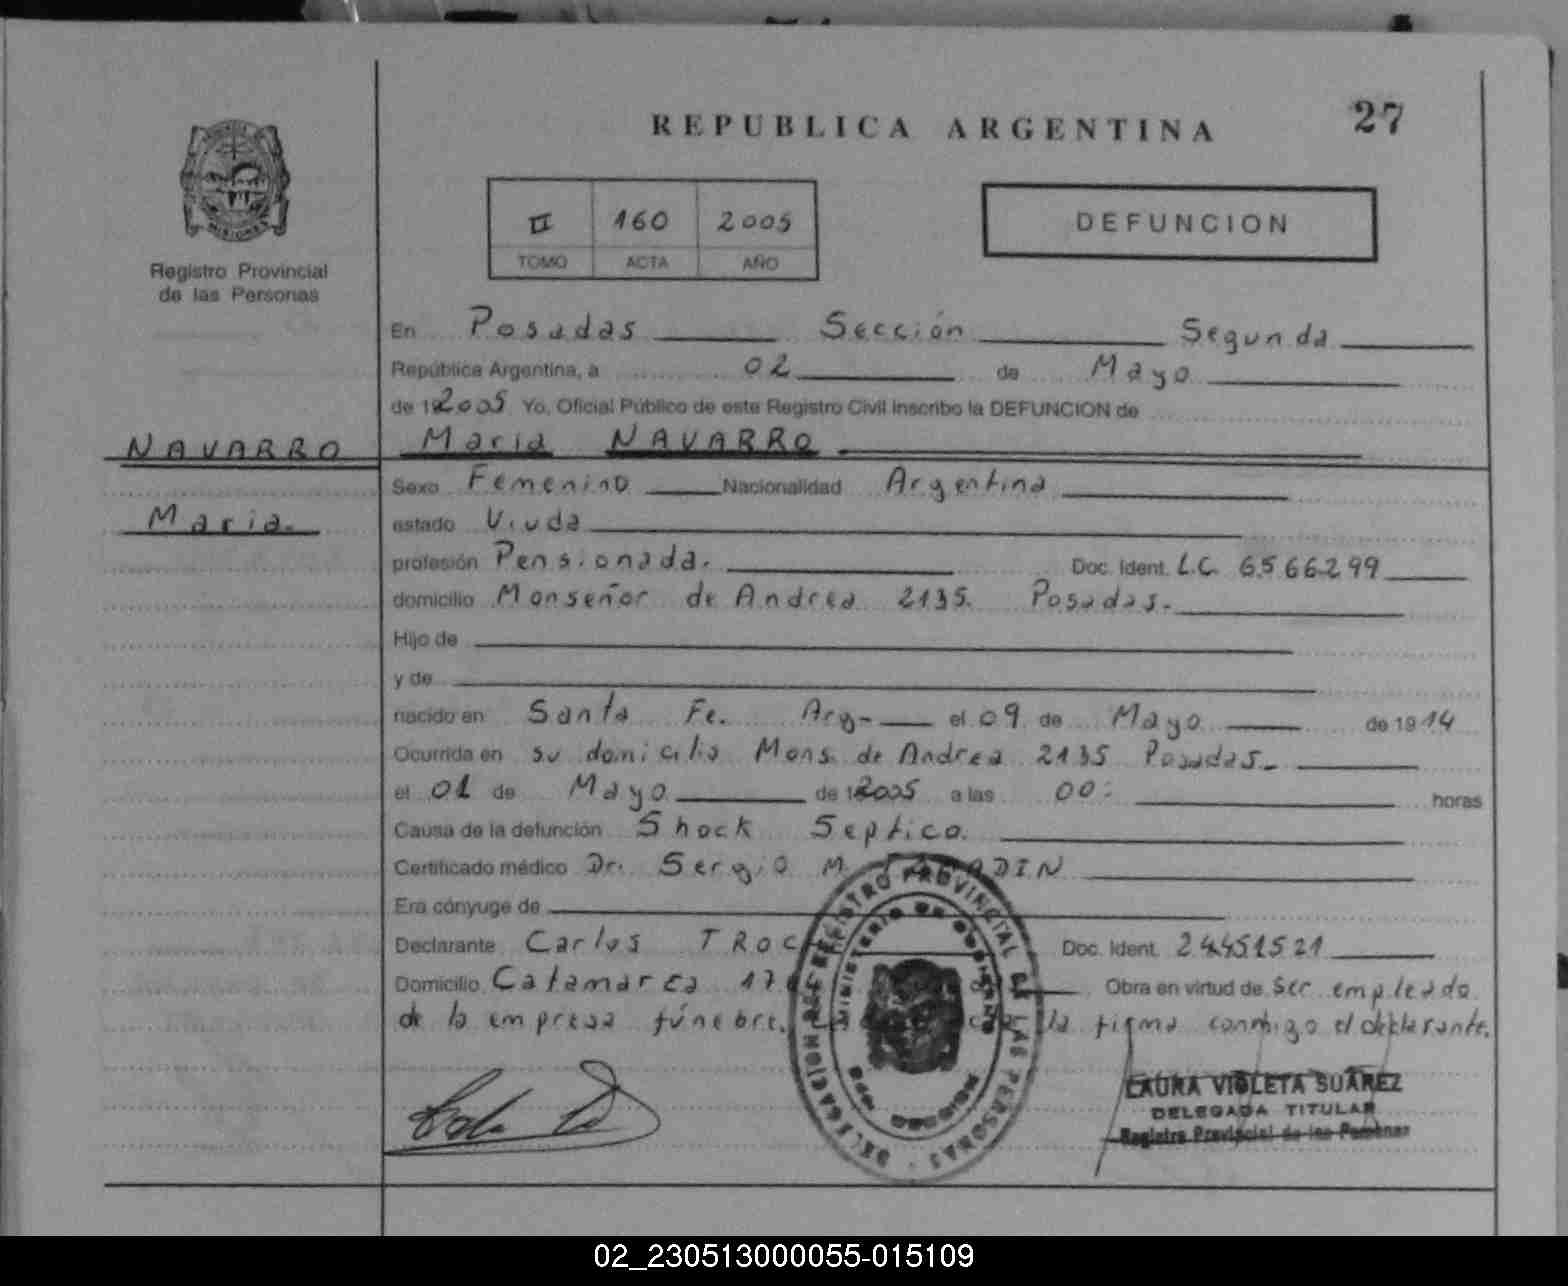 REPUBLICA ARGENTINA
27
II 160 2005
TOMO ACTA AÑO
DEFUNCION
MISIONES
Registro Provincial
de las Personas
En Posadas Sección Segunda
República Argentina, a 02 de Mayo
de 2005 Yo, Oficial Público de este Registro Civil inscribo la DEFUNCION de
NAVARRO
Maria NAVARRO
Maria.
Sexo Femenino Nacionalidad Argentina
estado Viuda
profesión Pensionada. Doc. Ident. L.C. 6566299
domicilio Monseñor de Andrea 2135. Posadas.
Hijo de
y de
nacido en Santa Fe. Arg- el 09 de Mayo de 1914
Ocurrida en su domicilio Mons. de Andrea 2135 Posadas.
el 01 de Mayo de 2005 a las 00: horas
Causa de la defunción Shock Septico.
Certificado médico Dr. Sergio M.
Era cónyuge de
Declarante Carlos Doc. Ident. 24451521
Domicilio Catamarca Obra en virtud de ser empleado
de la empresa fúnebre. la firma conmigo el declarante.
DELEGACION REGISTRO PROVINCIAL DE LAS PERSONAS
MINISTERIO DE GOBIERNO
LAURA VIOLETA SUAREZ
DELEGADA TITULAR
Registro Provincial de las Personas
02_230513000055-015109